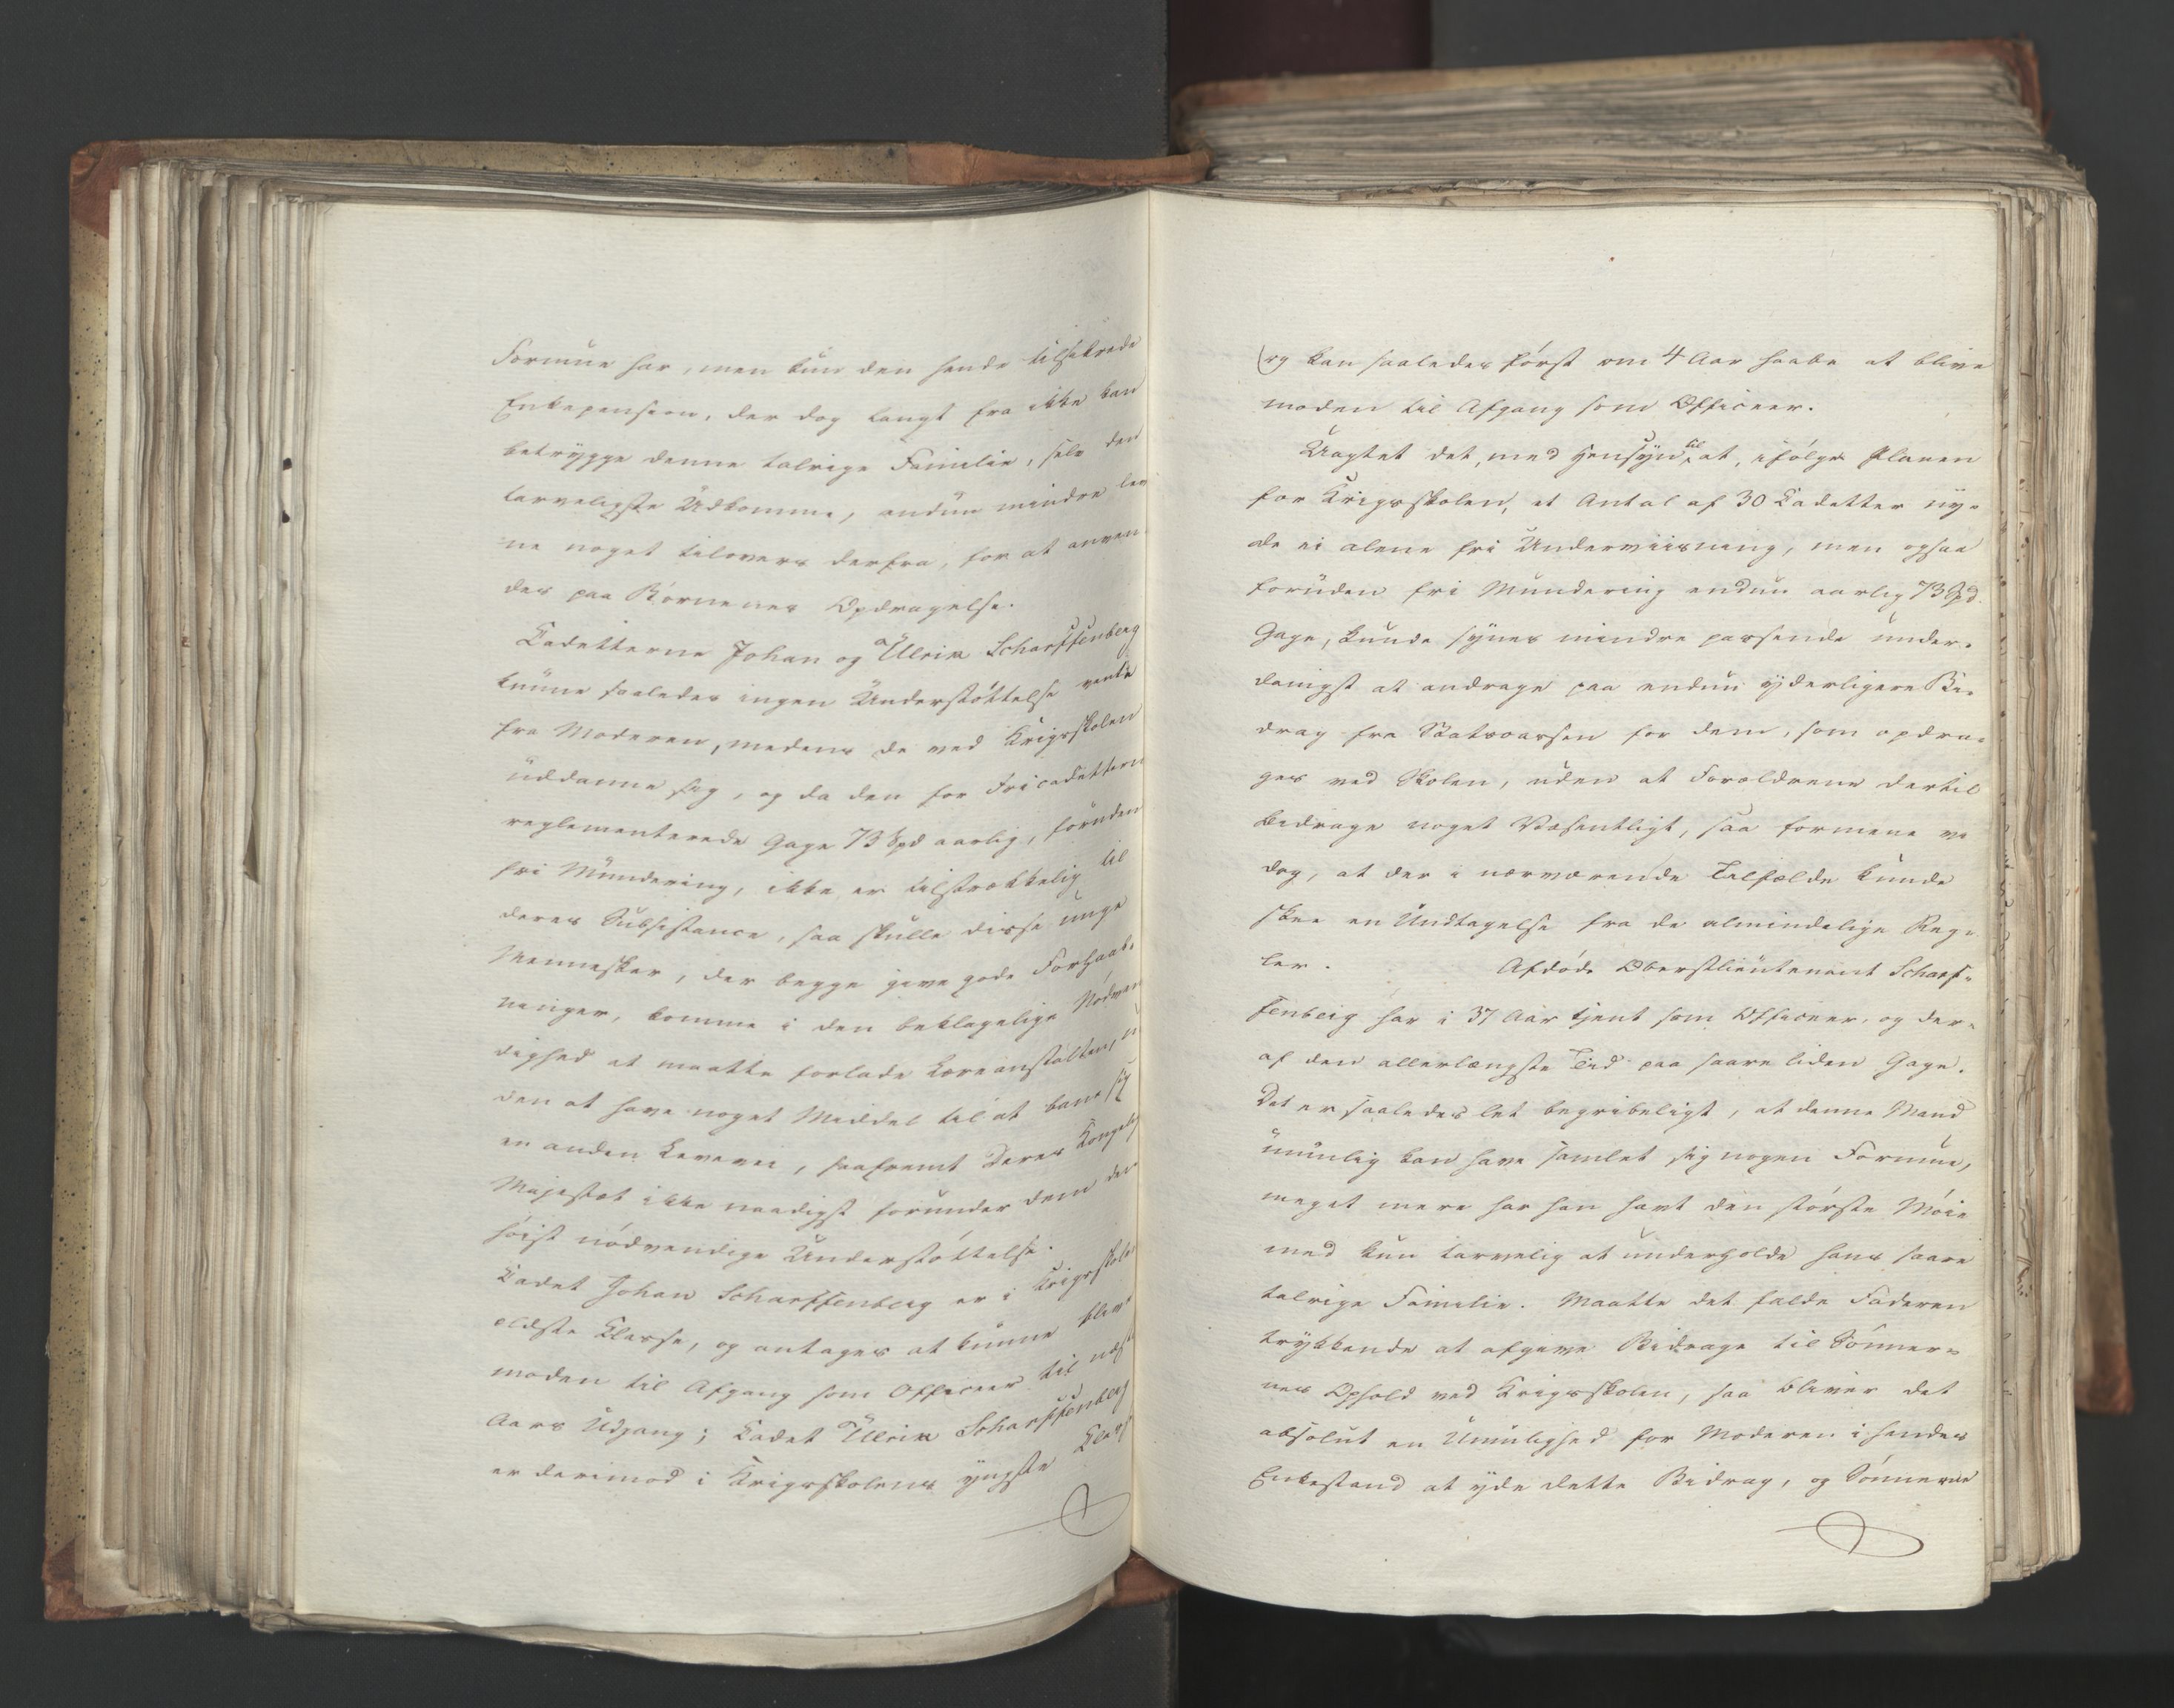 Formue har, men kun den hende tilsikrede
Enkepension, der dog langt fra ikke kan
betrygge denne talrige Familie, selv den
tarveligste Udkomme, endnu mindre lev
ne noget tilovers derfra, for at anven
des paa Børnenes Opdragelse.
Cadetterne Johan og Ulrik Scharffenberg
kunne saaledes ingen Understøttelse vente
fra Moderen, medens de ved Krigsskolen
uddanne sig, og da den for Fricadetterne
reglementerede Gage 73 Spd aarlig, foruden
fri Mundering, ikke er tilstrækkelig til
deres Subsistance, saa skulle disse unge
Mennesker, der begge give gode Forhaab-
ninger, komme i den beklagelige Nødven
dighed at maatte forlade Læreanstalten, u
den at have noget Middel til at bane sig
en anden Levevei, saafremt Deres Kongelig
Majestæt ikke naadigst forunder dem den
høist nødvendige Understøttelse.
Cadet Johan Scharffenberg er i Krigsskole
ældste Klasse, og antages at kunne blive
moden til Afgang som Officeer til næst
Aars Udgang; Cadet Ulrik Scharffenberg
er derimod i Krigsskolens yngste Klass
og kan saaledes først om 4 Aar haabe at blive
moden til Afgang som Officeer.
Uagtet det, med Hensyn til, at, ifølge Planen
for Krigsskolen, et Antal af 30 Cadetter ny-
de ei alene fri Underviisning, men ogsaa
foruden fri Mundering endnu aarlig 73 Spd.
Gage, kunde synes mindre passende under-
danigst at andrage paa endnu yderligere Bi-
drag fra Statscassen for dem, som opdra-
ges ved Skolen, uden at Forældrene dertil
bidrage noget Væsentligt, saa formene vi
dog, at der i nærværende Tilfælde kunde
skee en Undtagelse fra de almindelige Reg-
ler. Afdøde Oberstlieutenant Scharf-
fenberg har i 37 Aar tjent som Officeer, og der-
af den allerlængste Tid paa saare liden Gage.
Det er saaledes let begribeligt, at denne Mand
umulig kan have samlet sig nogen Formue,
meget mere har han havt den største Møie
med kun tarvelig at underholde hans saare
talrige Familie. Maatte det falde Faderen
trykkende at afgive Bidrage til Sønner-
nes Ophold ved Krigsskolen, saa bliver det
absolut en Umulighed for Moderen i hendes
Enkestand at yde dette Bidrag, og Sønnerne